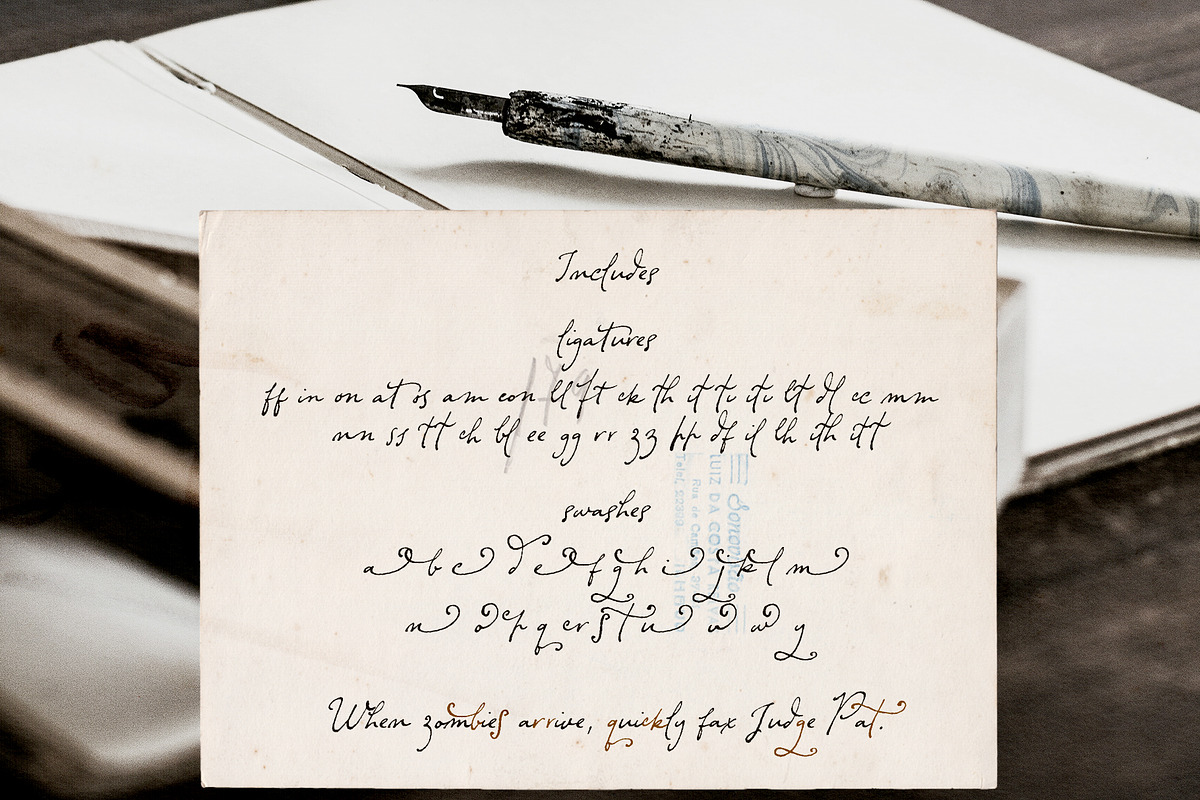 Includes
ligatures
ff in on at os am eon ll ft ck th it ti iti lt dl cc mm
nn ss tt ch bl ee gg rr zz pp df il lh ith itt
swashes
a b c d e f g h i j k l m
n o p q e r s t u v w y
When zombies arrive, quickly fax Judge Pat.
179
Sonoplata
LUIZ DA COSTA
Rua de
Telef. 22309